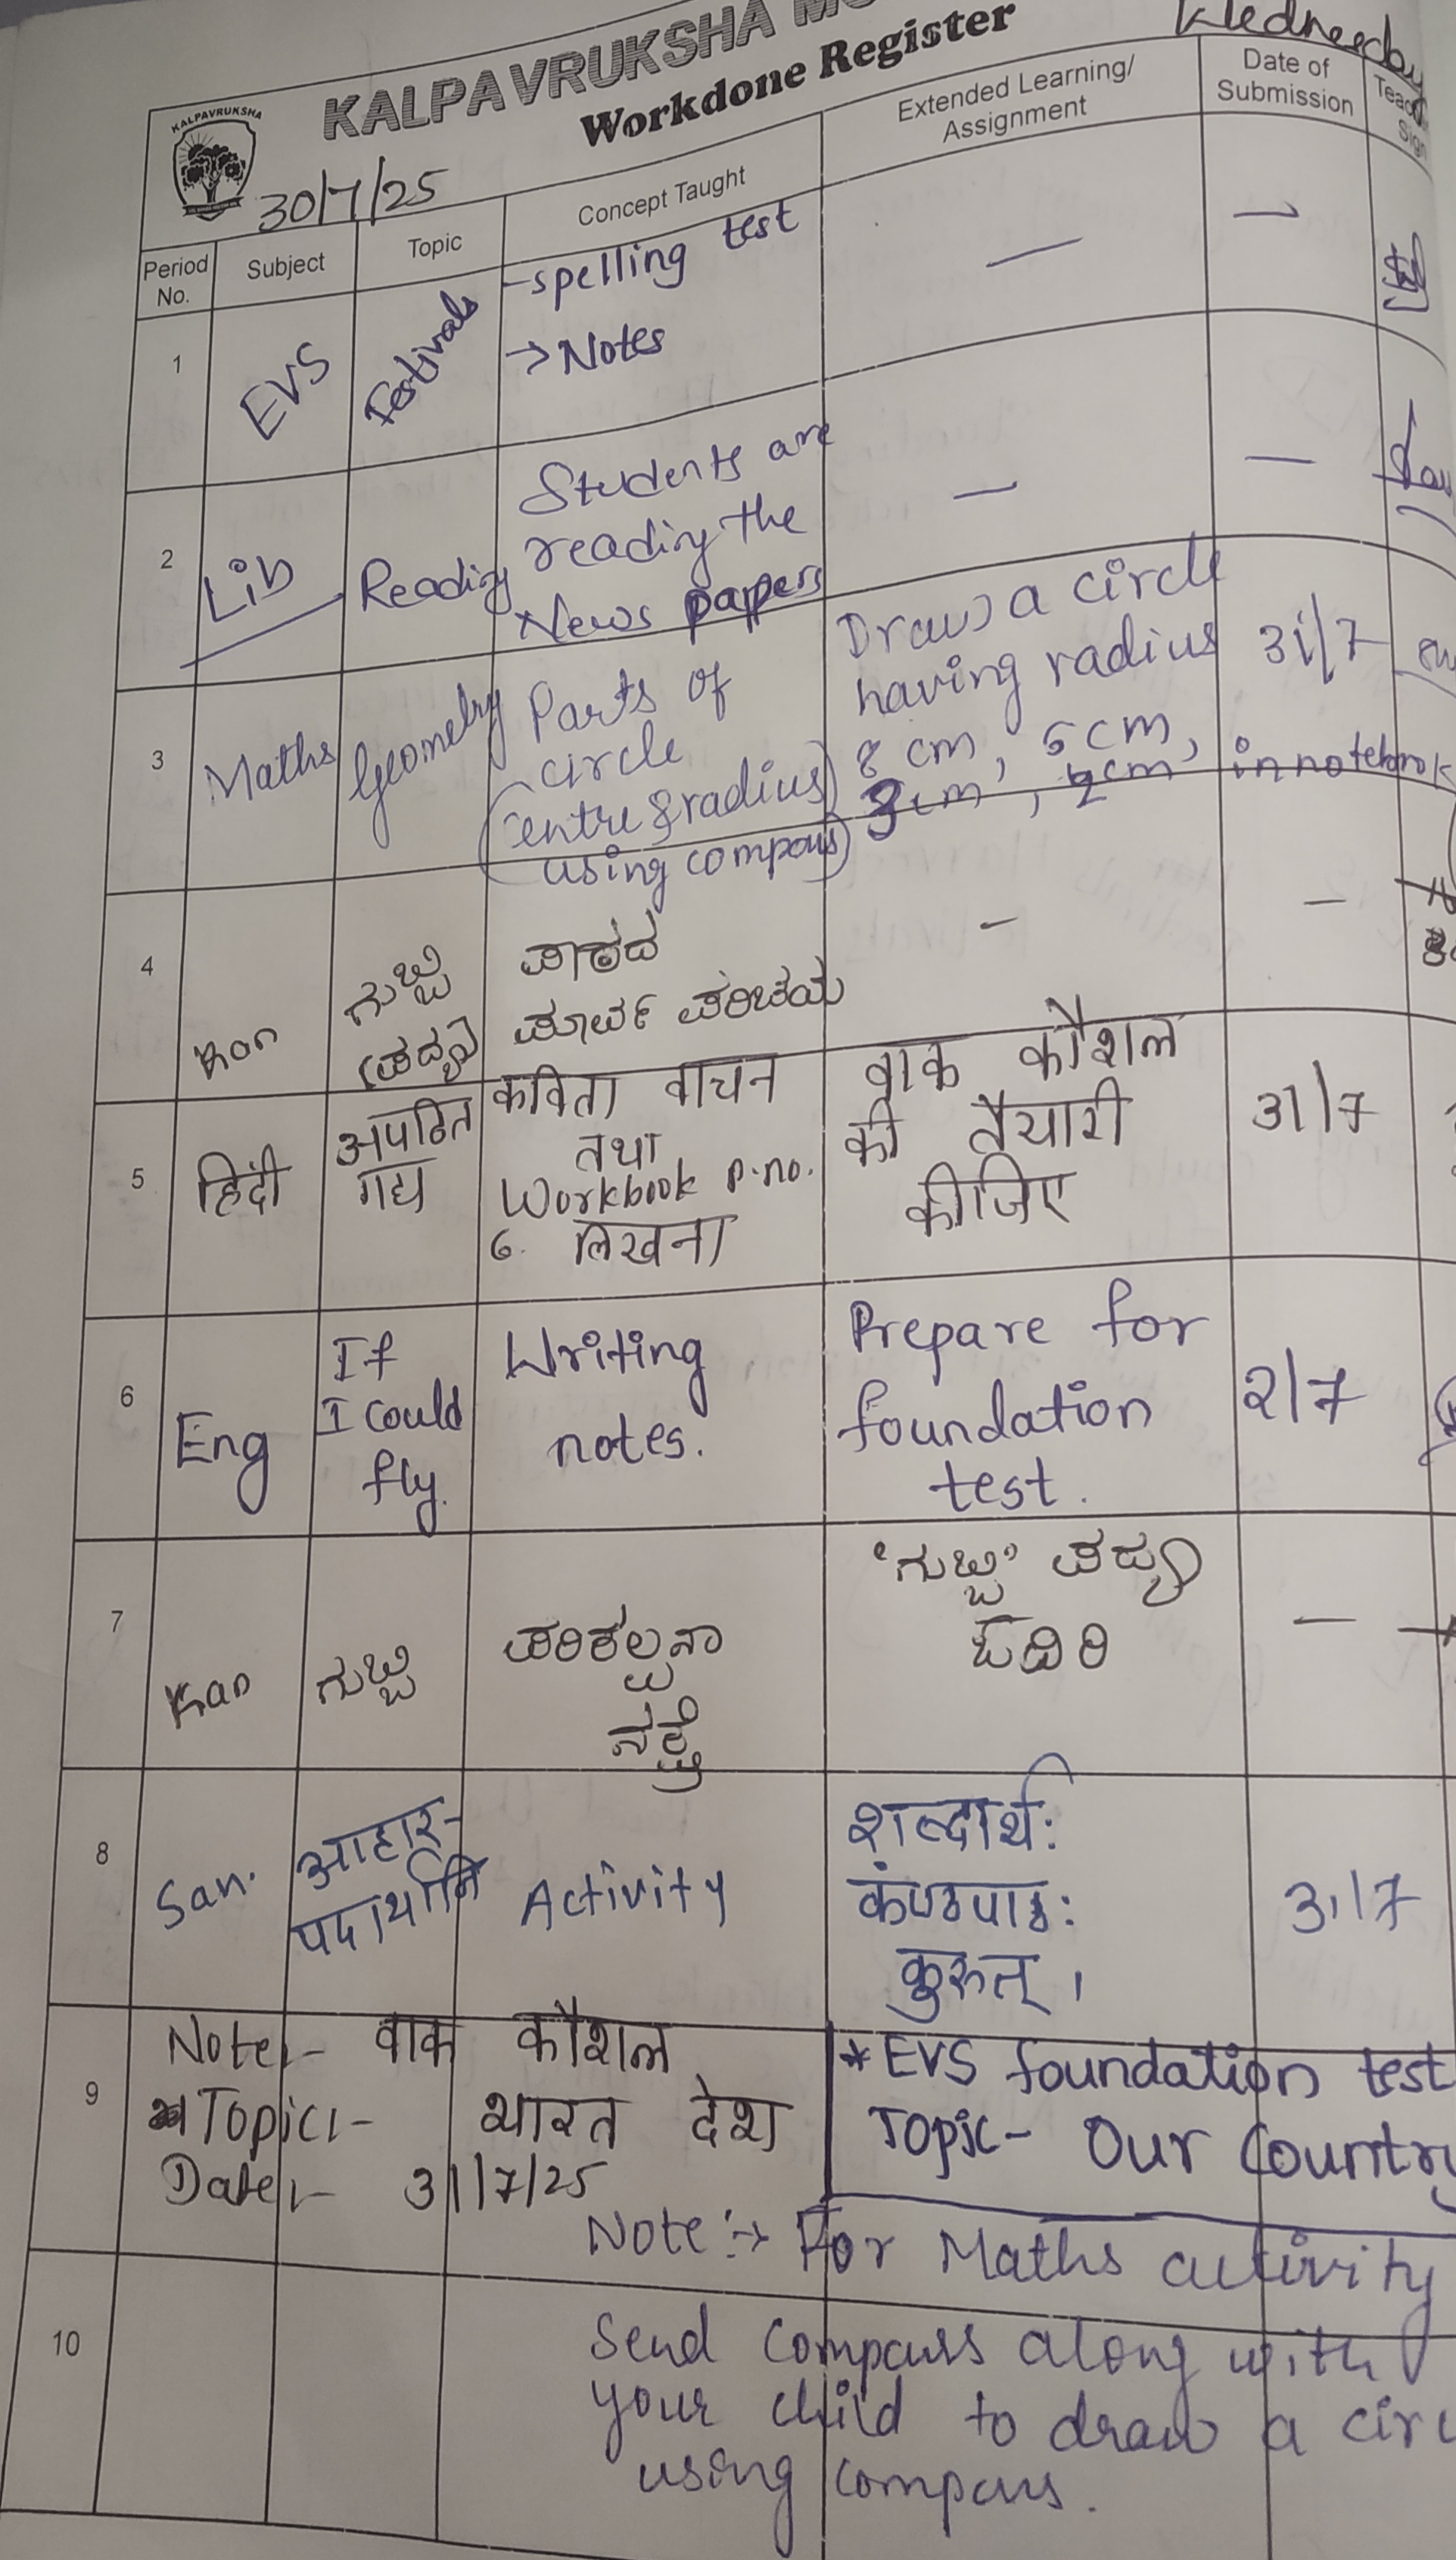 Wednesday
KALPAVRUKSHA
KALPAVRUKSHA
Workdone Register
30/7/25
Period No.
Subject
Topic
Concept Taught
Extended Learning/ Assignment
Date of Submission
1
EVS
Festivals
-spelling test
→ Notes
—
—
2
Lib
Reading
Students are
reading the
News papers
—
—
3
Maths
Geometry
Parts of
circle
(centre & radius)
using compass)
Draw a circle
having radius
8 cm, 5cm,
3cm, 2cm
31/7
in notebook
4
Kan
ಗುಬ್ಬಿ
(ಪದ್ಯ)
ಪಾಠದ
ಪೂರ್ವ ಪರಿಚಯ
-
-
5
हिंदी
अपठित
गद्य
कविता वाचन
तथा
Workbook p.no.
6. लिखना
वाक कौशल
की तैयारी
कीजिए
31/7
6
Eng
If
I could
fly.
Writing
notes.
Prepare for
foundation
test.
2/7
7
Kan
ಗುಬ್ಬಿ
ಪರಿಕಲ್ಪನಾ
ನಕ್ಷೆ
'ಗುಬ್ಬಿ' ಪದ್ಯ
ಓದಿರಿ
—
8
San.
आहार-
पदार्थानि
Activity
शब्दार्थ:
कंण्ठपाठ:
कुरुत्।
31/7
9
Note:- वाक कौशल
Topic:- भारत देश
Date:- 31/7/25
* EVS foundation test
Topic- Our Country
Note :→ For Maths activity
10
Send Compass along with
your child to draw a
using compass.